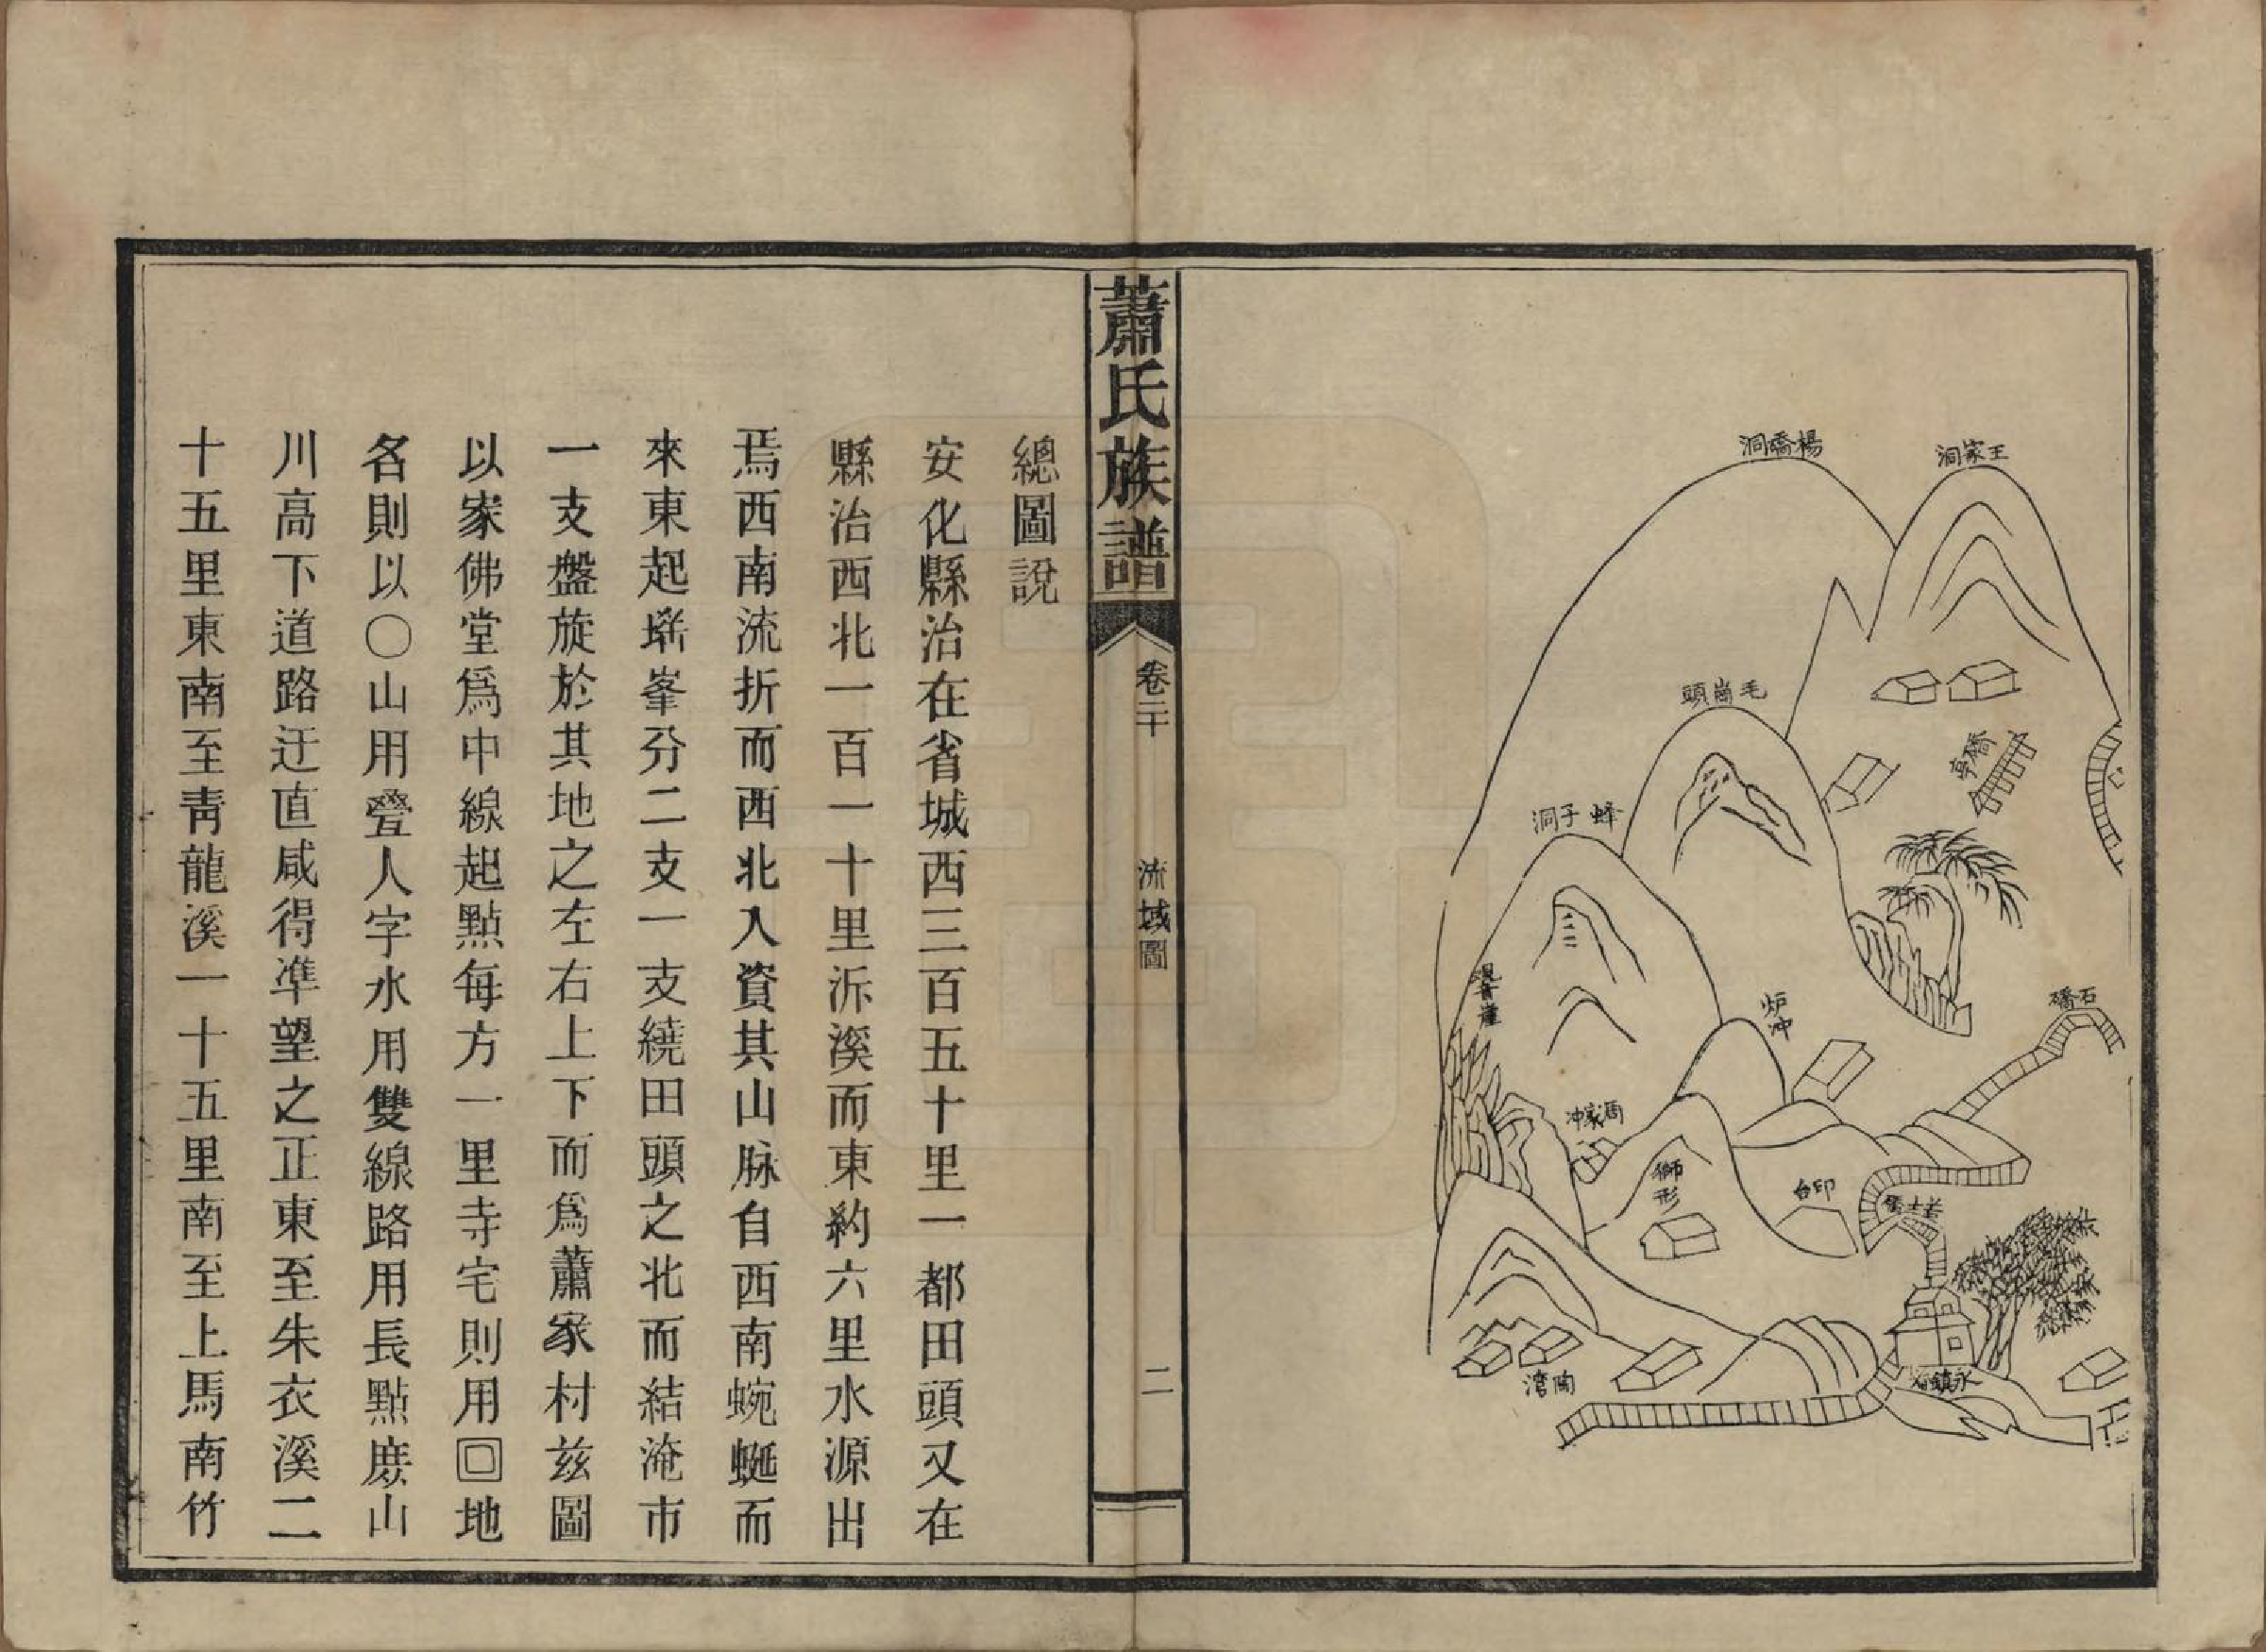 王家洞
楊橋洞
毛崗頭
橋亭
蜂子洞
觀音崖
炉冲
石橋
周家冲
獅形
印台
永鎮
陶灣
蕭氏族譜
卷二十
流域圖
二
總圖說
安化縣治在省城西三百五十里一都田頭又在
縣治西北一百一十里泝溪而東約六里水源出
焉西南流折而西北入資其山脉自西南蜿蜒而
來東起峯分二支一支繞田頭之北而結淹市
一支盤旋於其地之左右上下而爲蕭家村玆圖
以家佛堂爲中線起點每方一里寺宅則用回地
各則以〇山用疊人字水用雙線路用長點庶山
川高下道路迂直咸得準望之正東至朱衣溪二
十五里東南至靑龍溪一十五里南至上馬南竹